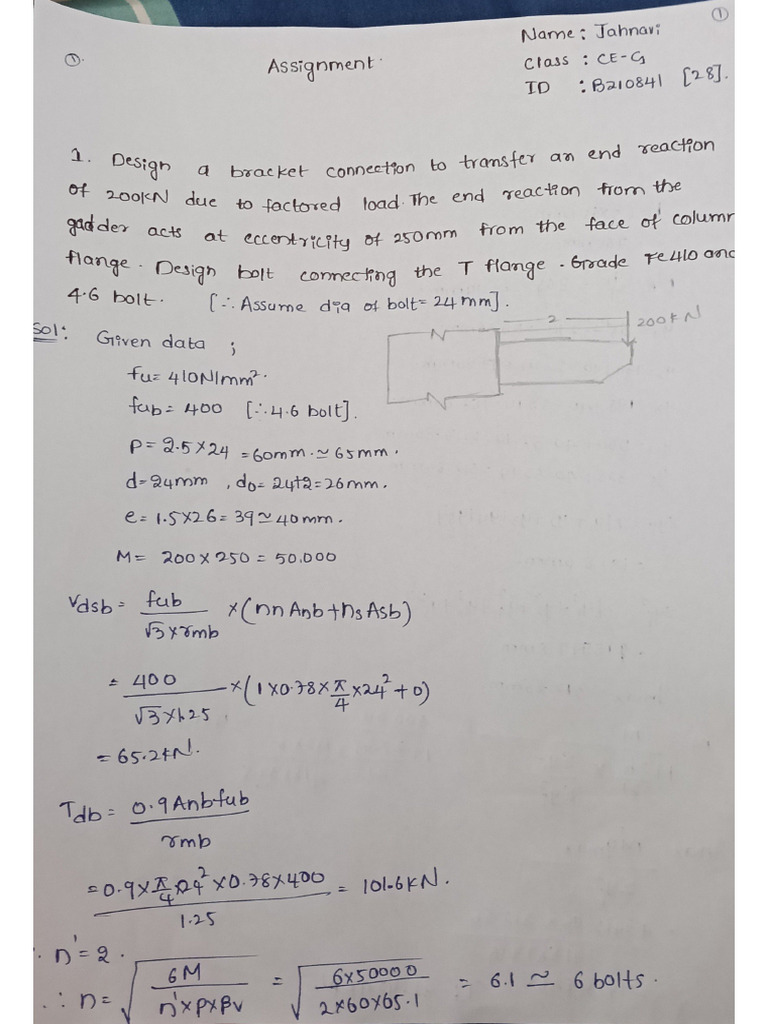 ①
Name: Jahnavi
①.
Assignment.
Class : CE-G
ID : B210841 [28].
1. Design a bracket connection to transfer an end reaction
of 200kN due to factored load. The end reaction from the
gadder acts at eccentricity of 250mm from the face of column
flange. Design bolt connecting the T flange. Grade Fe410 and
4.6 bolt. [∵ Assume dia of bolt= 24mm].
Sol: Given data ;
2
200kN
fu= 410N/mm².
fub= 400 [∵ 4.6 bolt].
P= 2.5×24 = 60mm. ≃ 65mm.
d=24mm , do= 24+2=26mm.
e= 1.5×26= 39≃40mm.
M= 200×250 = 50,000
Vdsb = fub/√3×rmb ×(nn Anb+ns Asb)
= 400/√3×1.25 ×(1×0.78×π/4×24²+0)
= 65.2kN.
Tdb = 0.9Anbfub/rmb
= 0.9×π/4×24²×0.78×400/1.25 = 101.6kN.
∴ n'= 2.
∴ n= √6M/n'×P×Pv = √6×50000/2×60×65.1 = 6.1 ≃ 6 bolts.